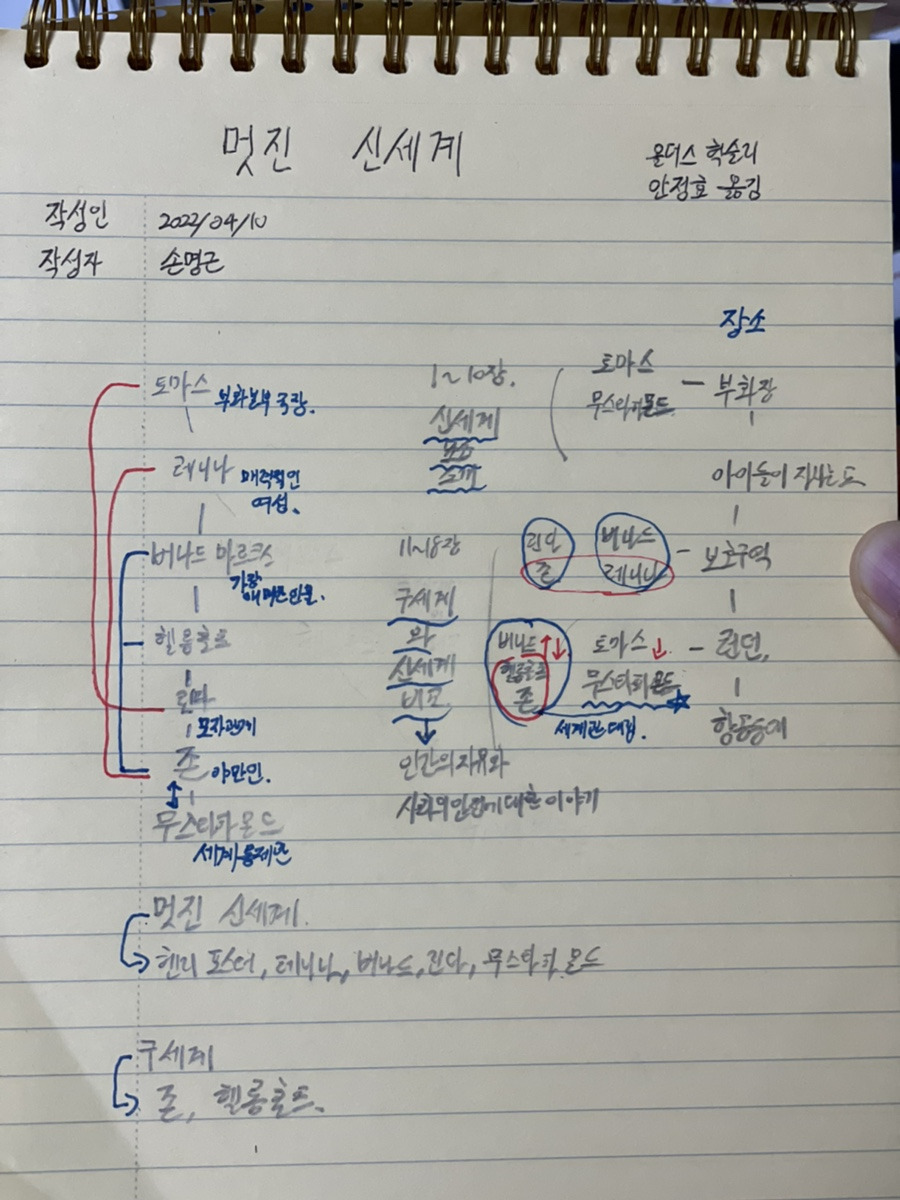 멋진 신세계
올더스 헉슬리
안정효 옮김
작성인 2022/04/10
작성자 손명근
장소
토마스 부화본부 국장.
레니나 매력적인
여성.
버나드 마르크스
가장
애매한 인물.
헬름홀츠
린다
모자관계
존 야만인.
무스타파 몬드
세계통제관
1~10장.
신세계
소개
11~18장
구세계
와
신세계
비교
인간의 자유와
사회의 안정에 대한 이야기
토마스
무스타파 몬드
부화장
린다 버나드
존 레니나
보호구역
버나드
헬름홀츠
존
토마스
무스타파 몬드
세계관 대립.
런던.
멋진 신세계.
헨리 포스터, 레니나, 버나드, 린다, 무스타파 몬드
구세계
존, 헬름홀츠.